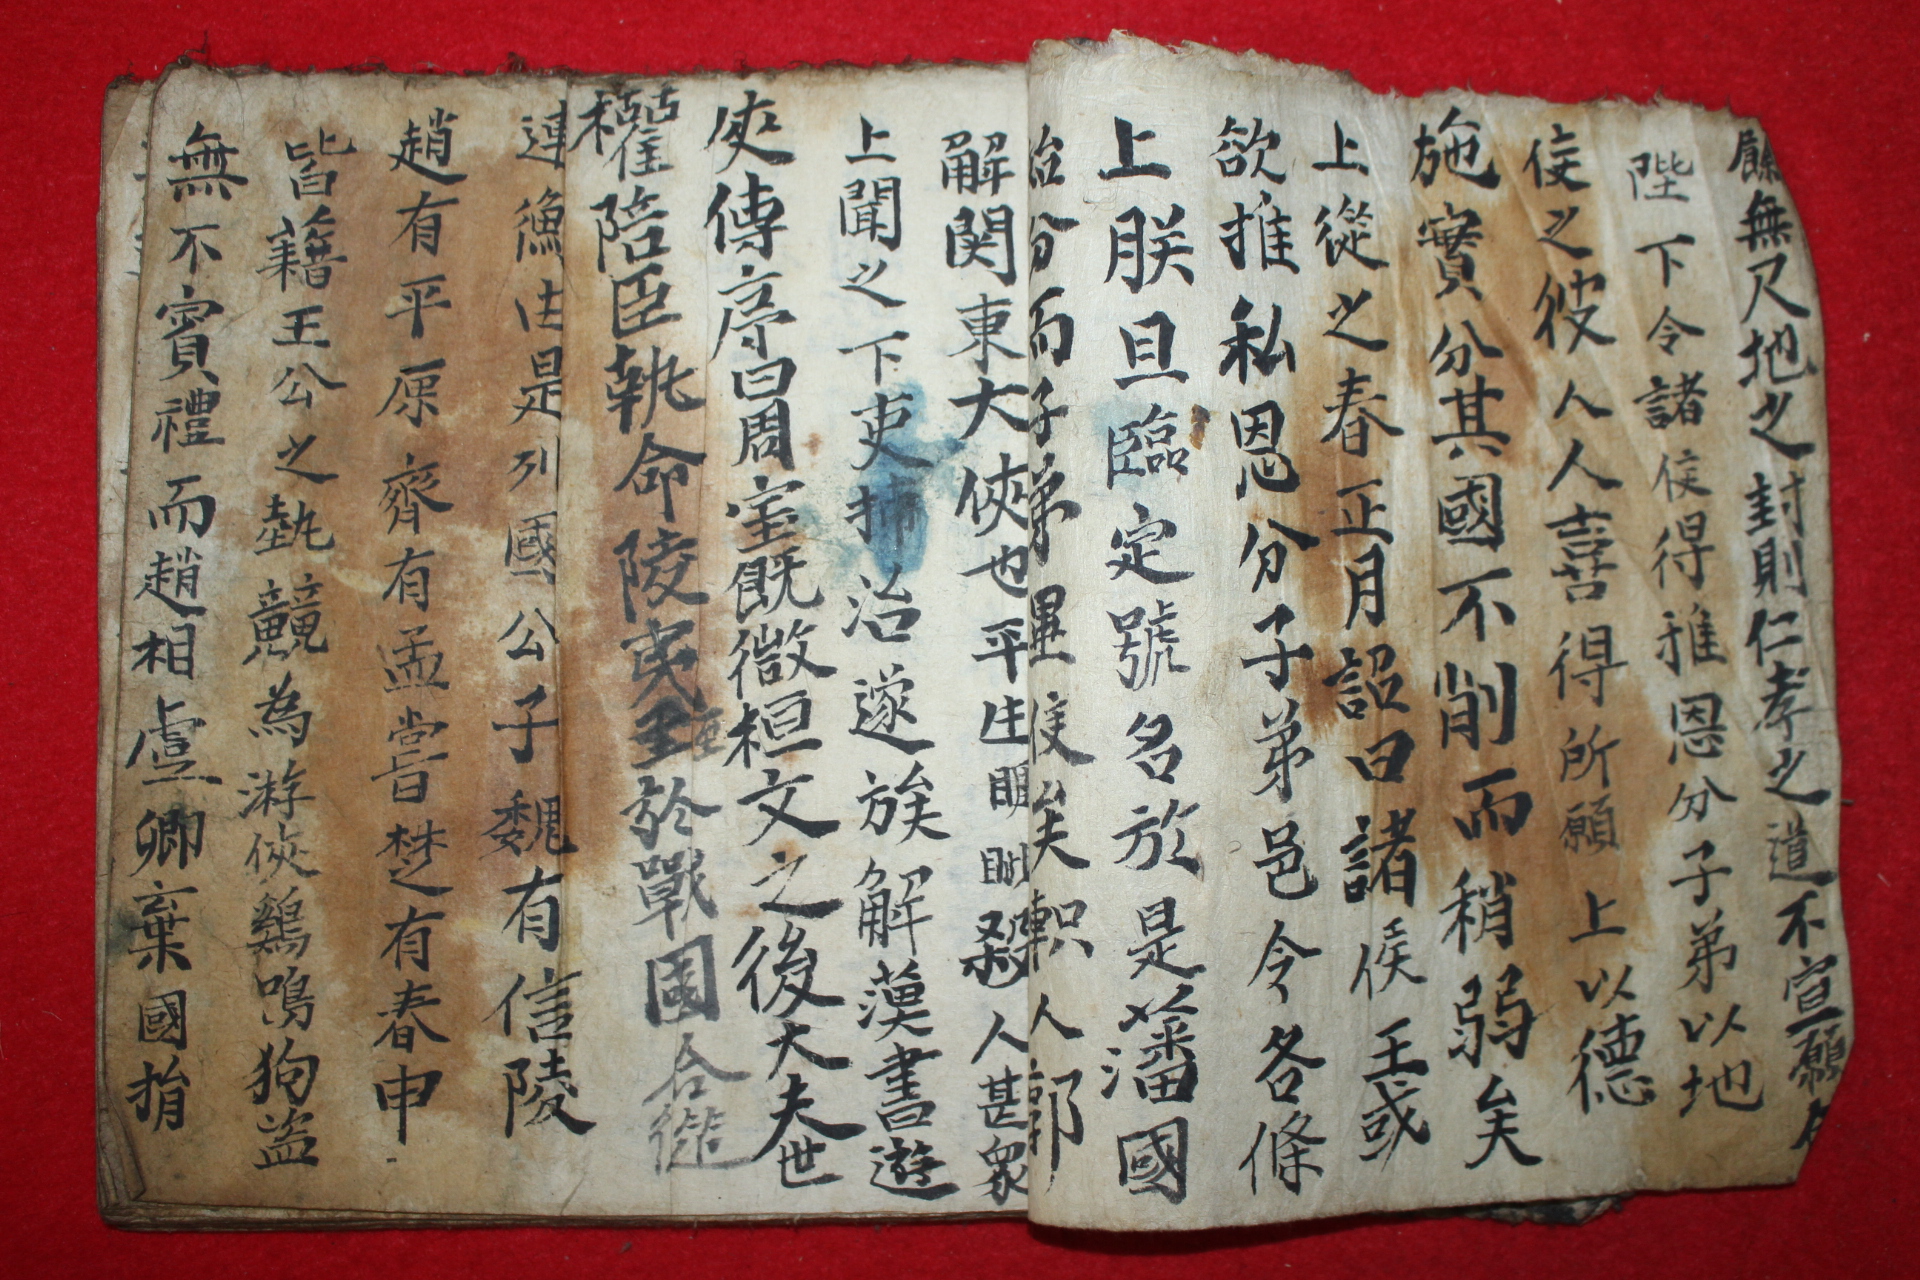 餘無尺地之封則仁孝之道不宣願
陛下令諸侯得推恩分子弟以地
侯之彼人人喜得所願上以德
施實分其國不削而稍弱矣
上從之春正月詔曰諸侯王或
欲推私恩分子弟邑令各條
上朕且臨定號名於是藩國
始分而子弟畢侯矣軹人郭
解関東大俠也平生眶眦殺人甚衆
上聞之下吏捕治遂族解漢書遊
俠傳序曰周室既微桓文之後大夫世
權陪臣執命陵夷至於戰國合從
連衡 是列國公子魏有信陵
趙有平原齊有孟嘗楚有春申
皆藉王公之埶競為游俠鷄鳴狗盜
無不賓禮而趙相虞卿棄國捐